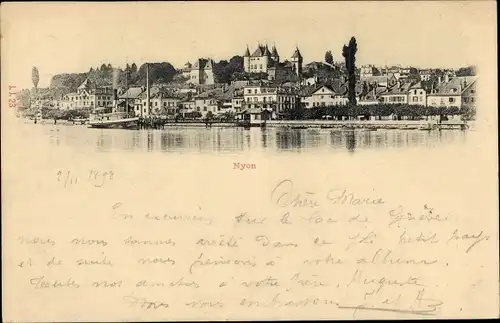 Nyon
Chère Marie
En excursion sur le lac de Genève
nous nous sommes arrêté dans ce joli petit pays
et de suite nous pensons à votre album.
Toutes nos amitiés à votre frère, Auguste
Nous vous embrassons